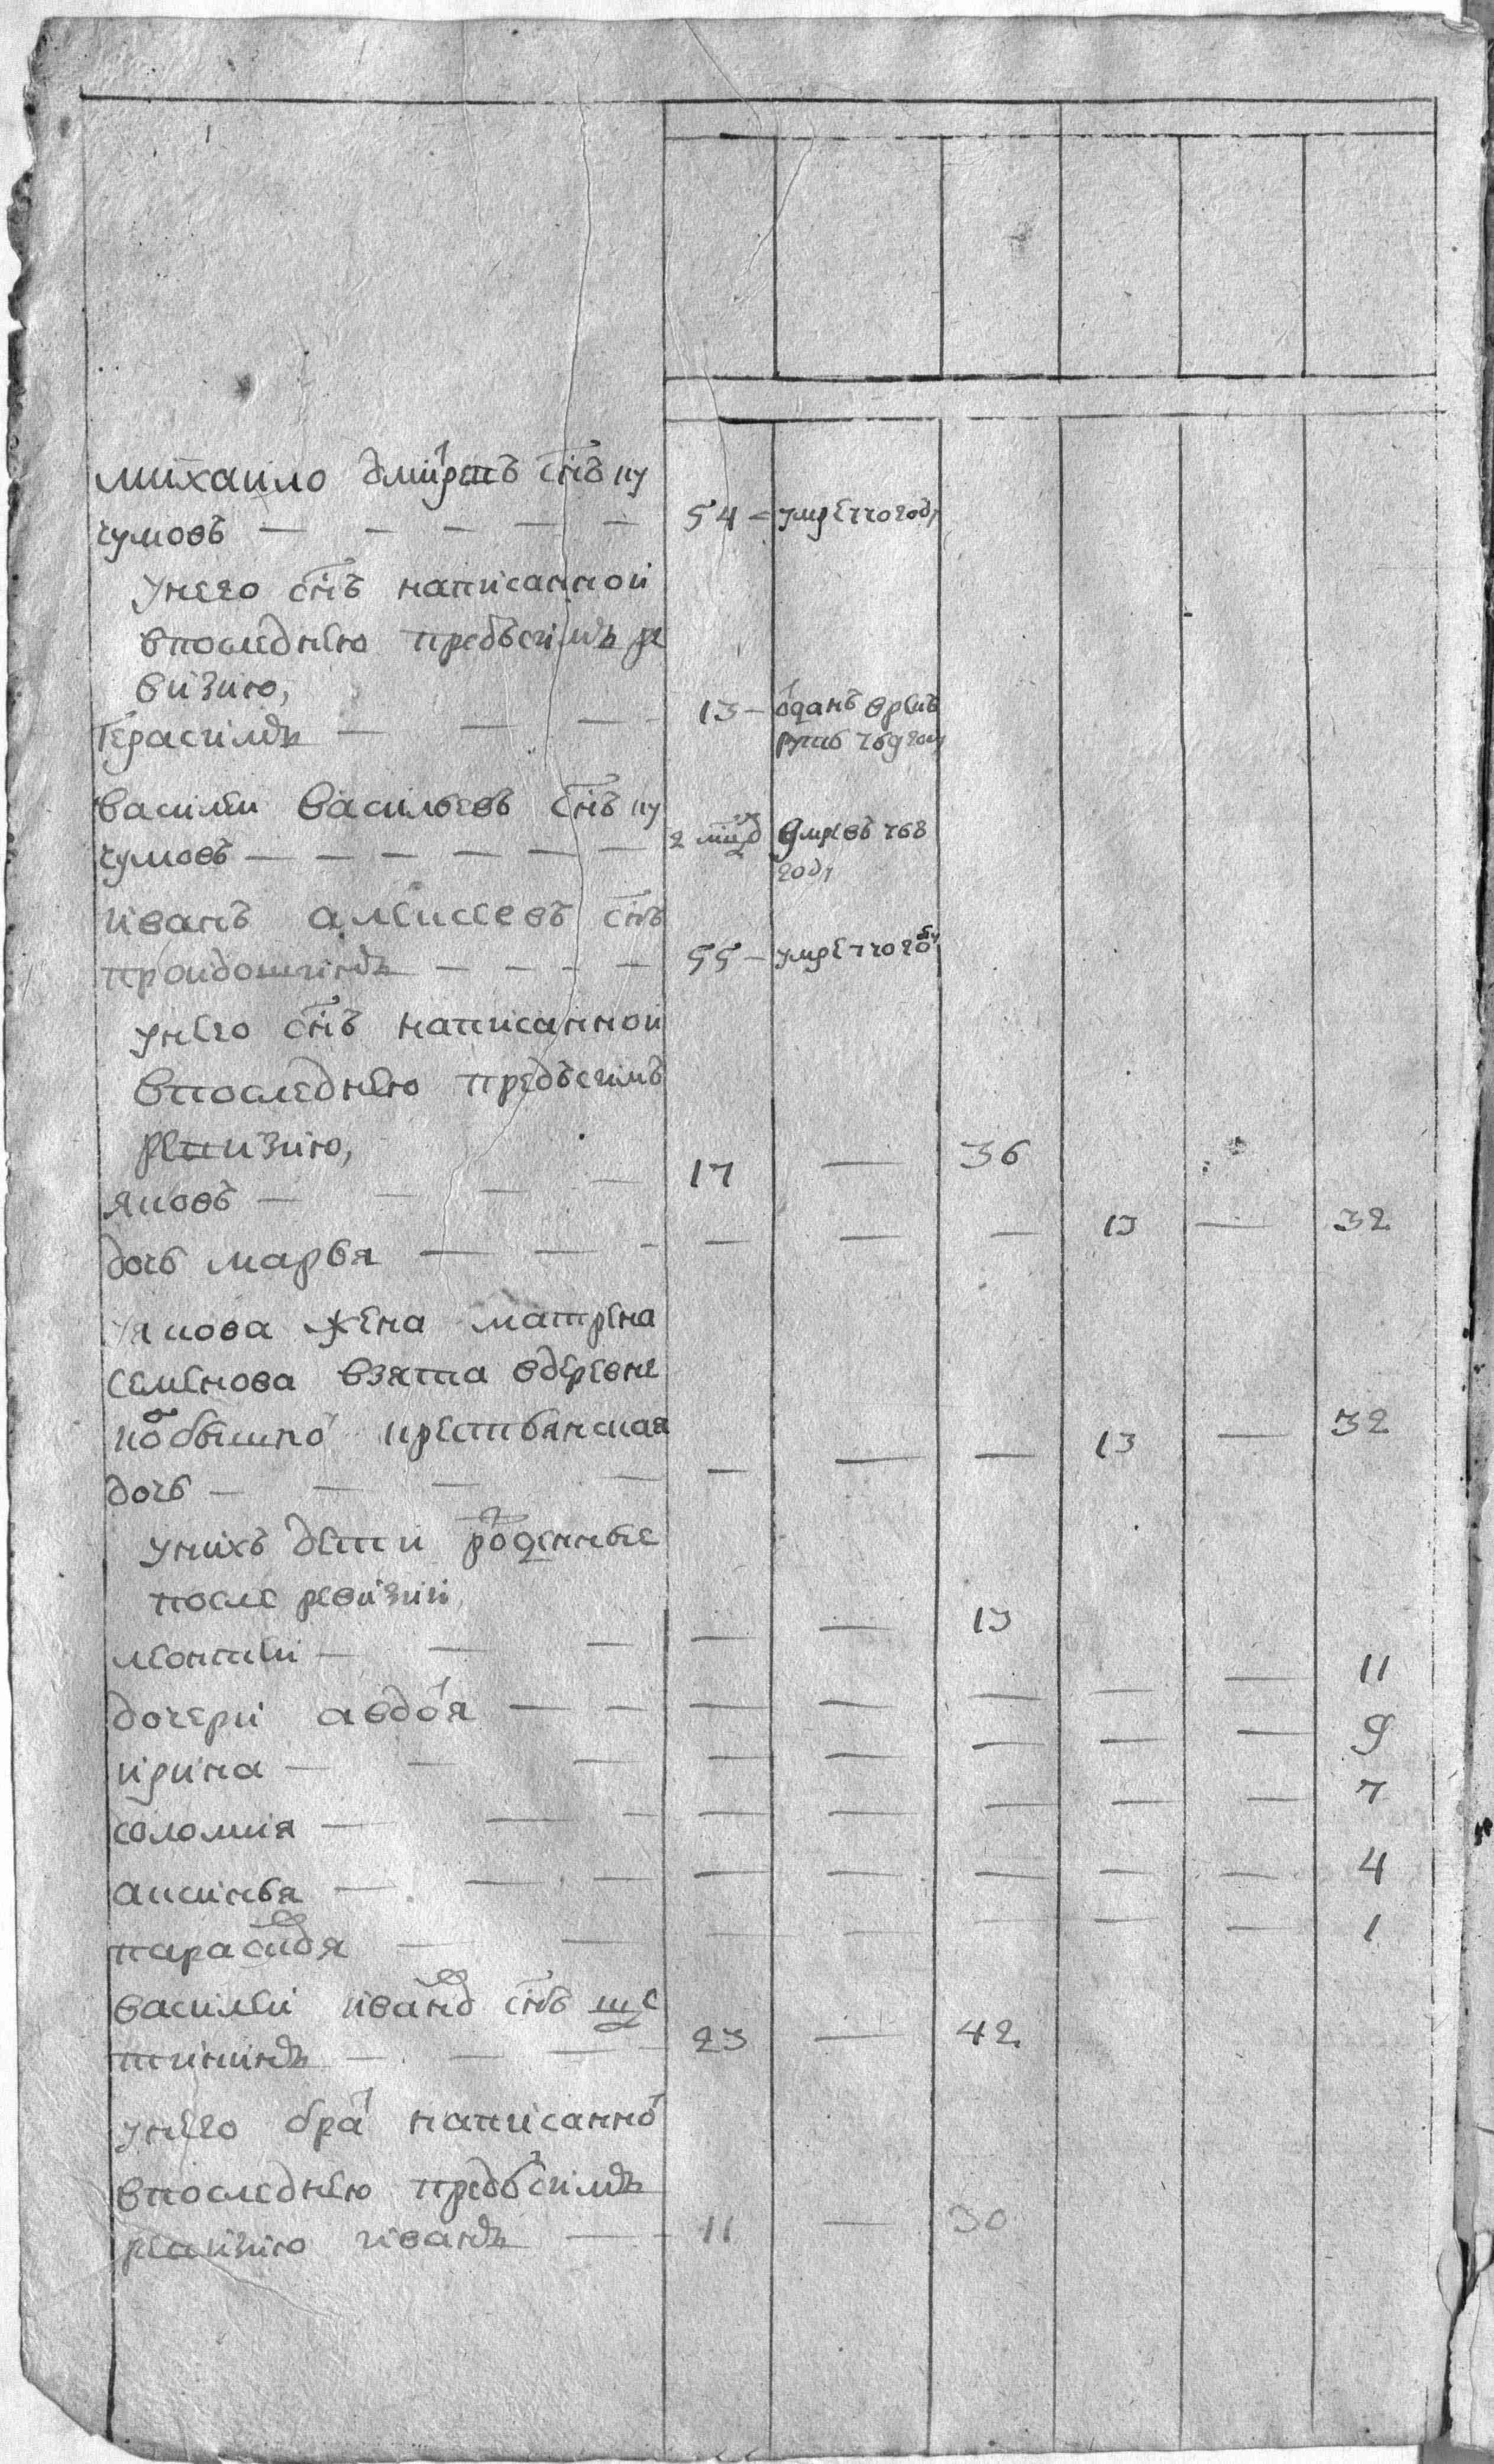 михаило дмитревъ снъ ку
чумовъ — — — — — 54 – умре 770 году
унего снъ написанной
впоследнею предъсимъ ре
визию,
Герасимъ — — — 13 – оданъ врекъ
руты 769 году
василеи васильевъ снъ ку
чумовъ — — — — — — 2 мцъ умре въ 768
году
иванъ алексеевъ снъ
— — — — 55 – умре 770 году
унего снъ написанной
впоследнею предъсимъ
ревизию,
яковъ — — — — 17 — 36
дочь марья — — - — — — 13 — 32
у якова жена матрена
семенова взята вдеревне
крестьянская
дочь — — — — — — — 13 — 32
унихъ дети рожденные
после ревизии
леонтеи — — — — — 13
дочери авдотья — — — — — — — 11
ирина — — — — — — — — 9
соломия — — — — — — — — 7
аксинья — — — — — — — — 4
парасковья — — — — — — — 1
василеи ивановъ снъ ше
— — — 23 — 42
унего братъ написанной
впоследнею предъсимъ
ревизию иванъ — - 11 — 30